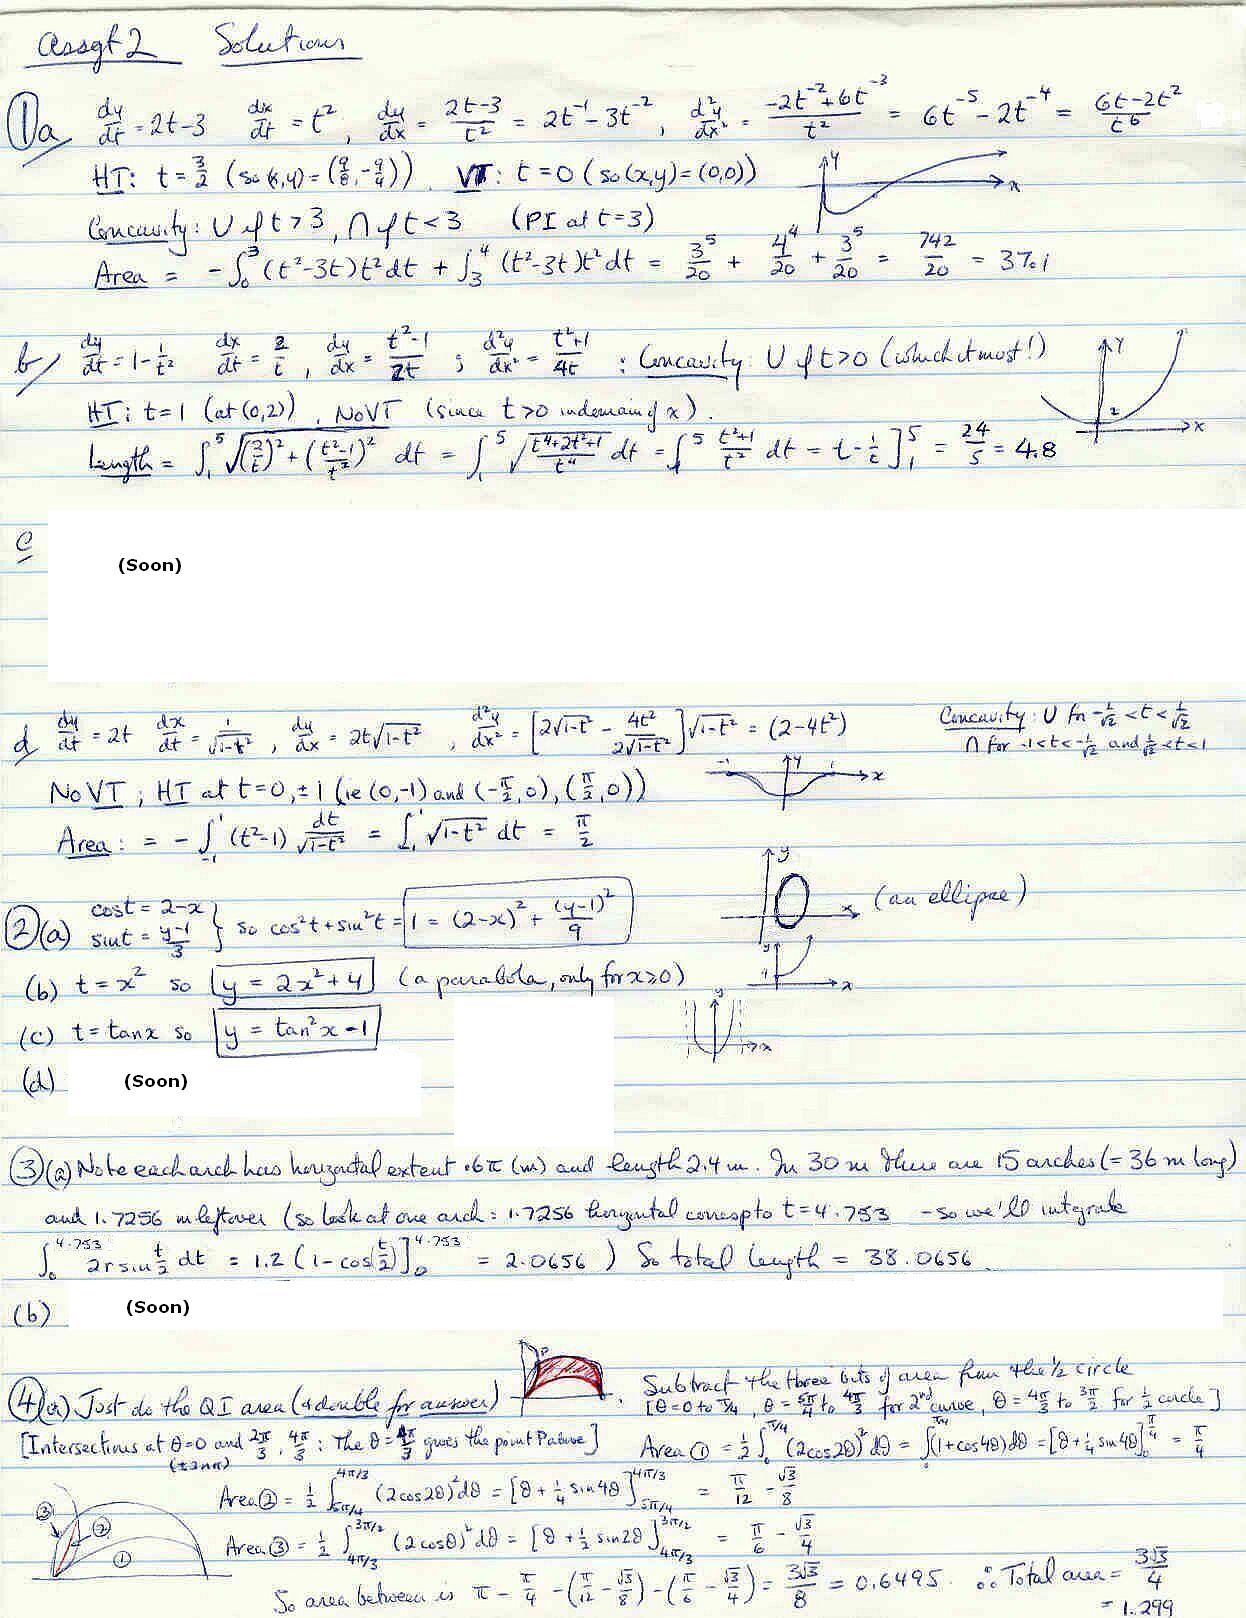 Assgt 2 Solutions
① a/ dy/dt = 2t-3 dx/dt = t², dy/dx = (2t-3)/t² = 2t⁻¹ - 3t⁻², d²y/dx² = (-2t⁻² + 6t⁻³)/t² = 6t⁻⁵ - 2t⁻⁴ = (6t-2t²)/t⁶
HT: t = 3/2 (so (x,y) = (9/8, -9/4)). VT: t = 0 (so (x,y) = (0,0))
y
x
Concavity: ∪ if t > 3, ∩ if t < 3 (PI at t = 3)
Area = -∫₀³ (t²-3t)t² dt + ∫₃⁴ (t²-3t)t² dt = 3⁵/20 + 4⁴/20 + 3⁵/20 = 742/20 = 37.1
b/ dy/dt = 1 - 1/t² dx/dt = 2/t, dy/dx = (t²-1)/2t ; d²y/dx² = (t²+1)/4t : Concavity: ∪ if t>0 (which it must!)
y
HT: t = 1 (at (0,2)), No VT (since t>0 in domain of x).
2
x
Length = ∫₁⁵ √((2/t)² + ((t²-1)/t²)²) dt = ∫₁⁵ √((t⁴+2t²+1)/t⁴) dt = ∫₁⁵ (t²+1)/t² dt = t - 1/t ]₁⁵ = 24/5 = 4.8
c
(Soon)
d dy/dt = 2t dx/dt = 1/√(1-t²), dy/dx = 2t√(1-t²), d²y/dx² = [2√(1-t²) - 4t²/(2√(1-t²))]√(1-t²) = (2-4t²)
Concavity: ∪ for -1/√2 < t < 1/√2
∩ for -1<t<-1/√2 and 1/√2<t<1
No VT ; HT at t = 0, ±1 (ie (0,-1) and (-π/2, 0), (π/2, 0))
-1 y 1 x
Area: = -∫₋₁¹ (t²-1) dt/√(1-t²) = ∫₋₁¹ √(1-t²) dt = π/2
② (a) cos t = 2-x
sin t = (y-1)/3 } so cos²t + sin²t = 1 = (2-x)² + (y-1)²/9
y
x
(an ellipse)
(b) t = x² so y = 2x²+4 (a parabola, only for x≥0)
y
x
(c) t = tan x so y = tan²x - 1
y
x
(d) (Soon)
③ (a) Note each arch has horizontal extent .6π (m) and length 2.4 m. In 30 m there are 15 arches (= 36 m long)
and 1.7256 m leftover (so look at one arch: 1.7256 horizontal corresp to t = 4.753 - so we'll integrate
∫₀^4.753 2r sin t/2 dt = 1.2 (1 - cos(t/2)]₀^4.753 = 2.0656) So total length = 38.0656.
(b) (Soon)
④ (a) Just do the QI area (& double for answer)
P
Subtract the three bits of area from the ½ circle
[θ = 0 to π/4, θ = 5π/4 to 4π/3 for 2nd curve, θ = 4π/3 to 3π/2 for ½ circle]
[Intersections at θ = 0 and 2π/3, 4π/3 : The θ = 4π/3 gives the point P above]
(±2nπ)
Area ① = ½∫₀^π/4 (2cos2θ)² dθ = ∫₀^π/4 (1+cos4θ)dθ = [θ + ¼ sin4θ]₀^π/4 = π/4
Area ② = ½ ∫_5π/4^4π/3 (2cos2θ)² dθ = [θ + ¼ sin4θ]_5π/4^4π/3 = π/12 - √3/8
③ ② ①
Area ③ = ½ ∫_4π/3^3π/2 (2cosθ)² dθ = [θ + ½ sin2θ]_4π/3^3π/2 = π/6 - √3/4
So area between is π - π/4 - (π/12 - √3/8) - (π/6 - √3/4) = 3√3/8 = 0.6495. ∴ Total area = 3√3/4
= 1.299